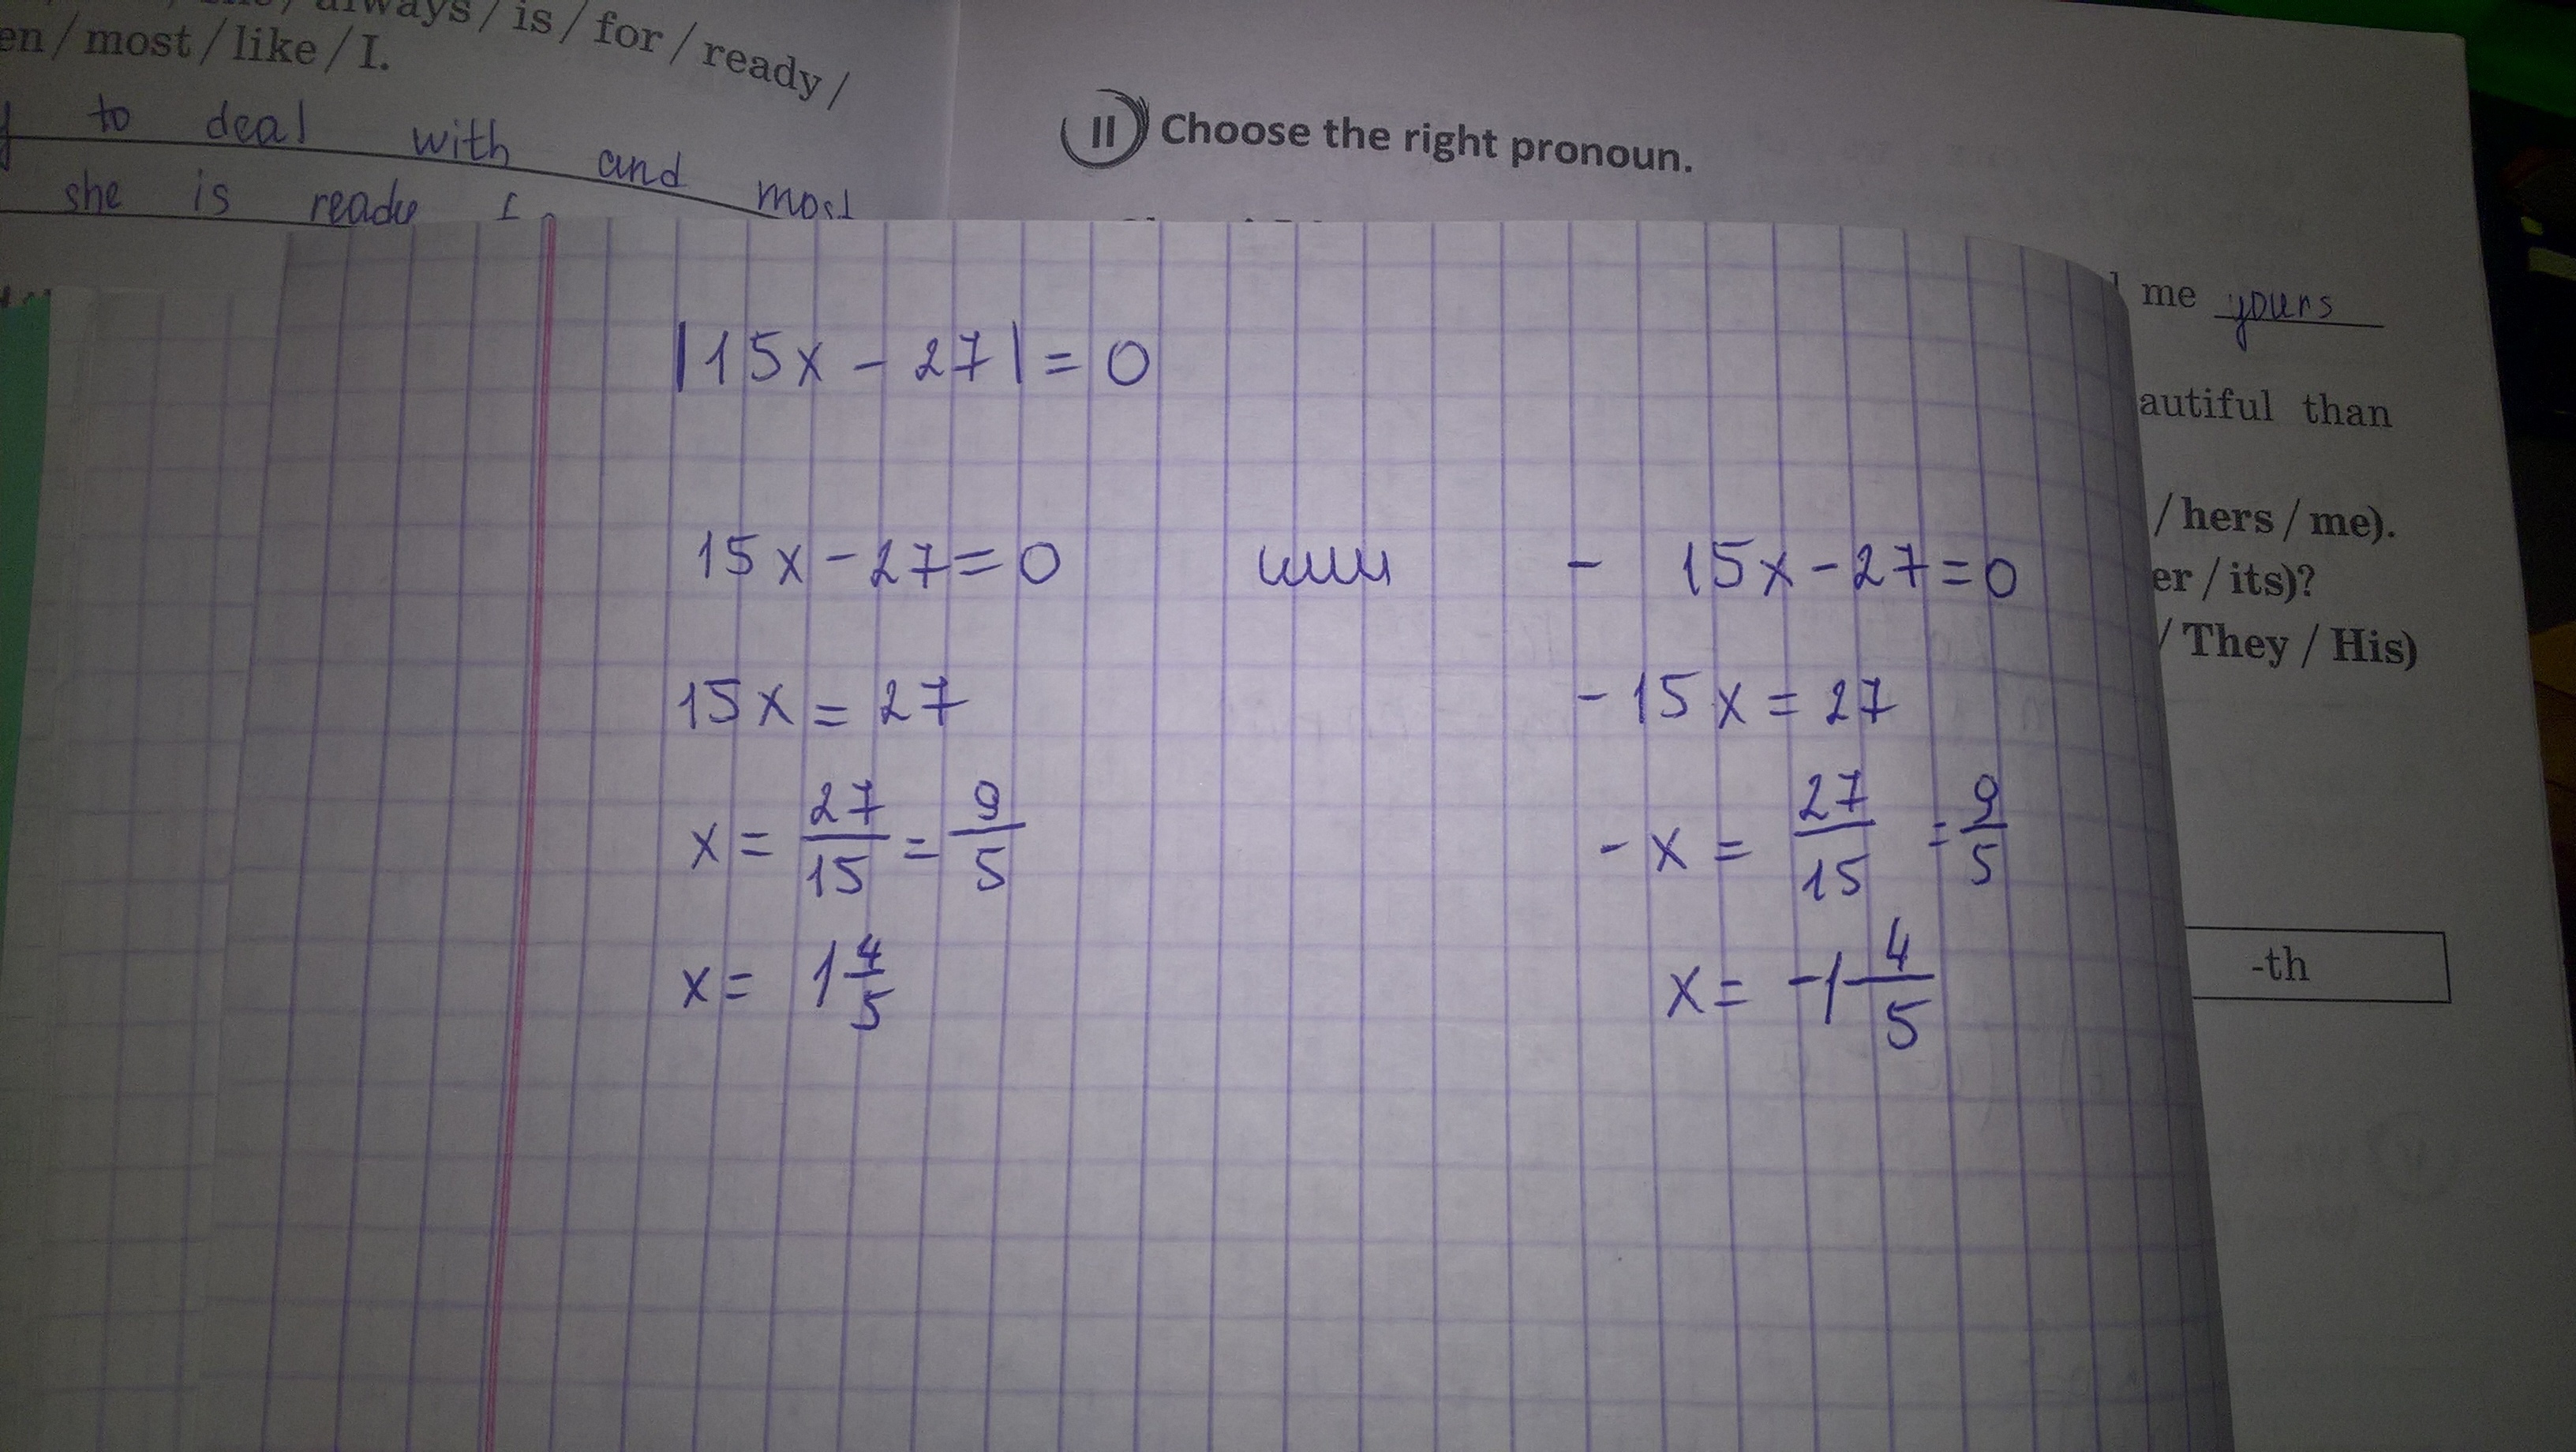 always / is / for / ready /
en / most / like / I.
to deal with and most
she is ready
II Choose the right pronoun.
me yours
autiful than
/ hers / me).
er / its)?
/ They / His)
-th
|15x - 27| = 0
15x - 27 = 0 или - 15x - 27 = 0
15x = 27 -15x = 27
x = 27/15 = 9/5 -x = 27/15 = 9/5
x = 1 4/5 x = -1 4/5